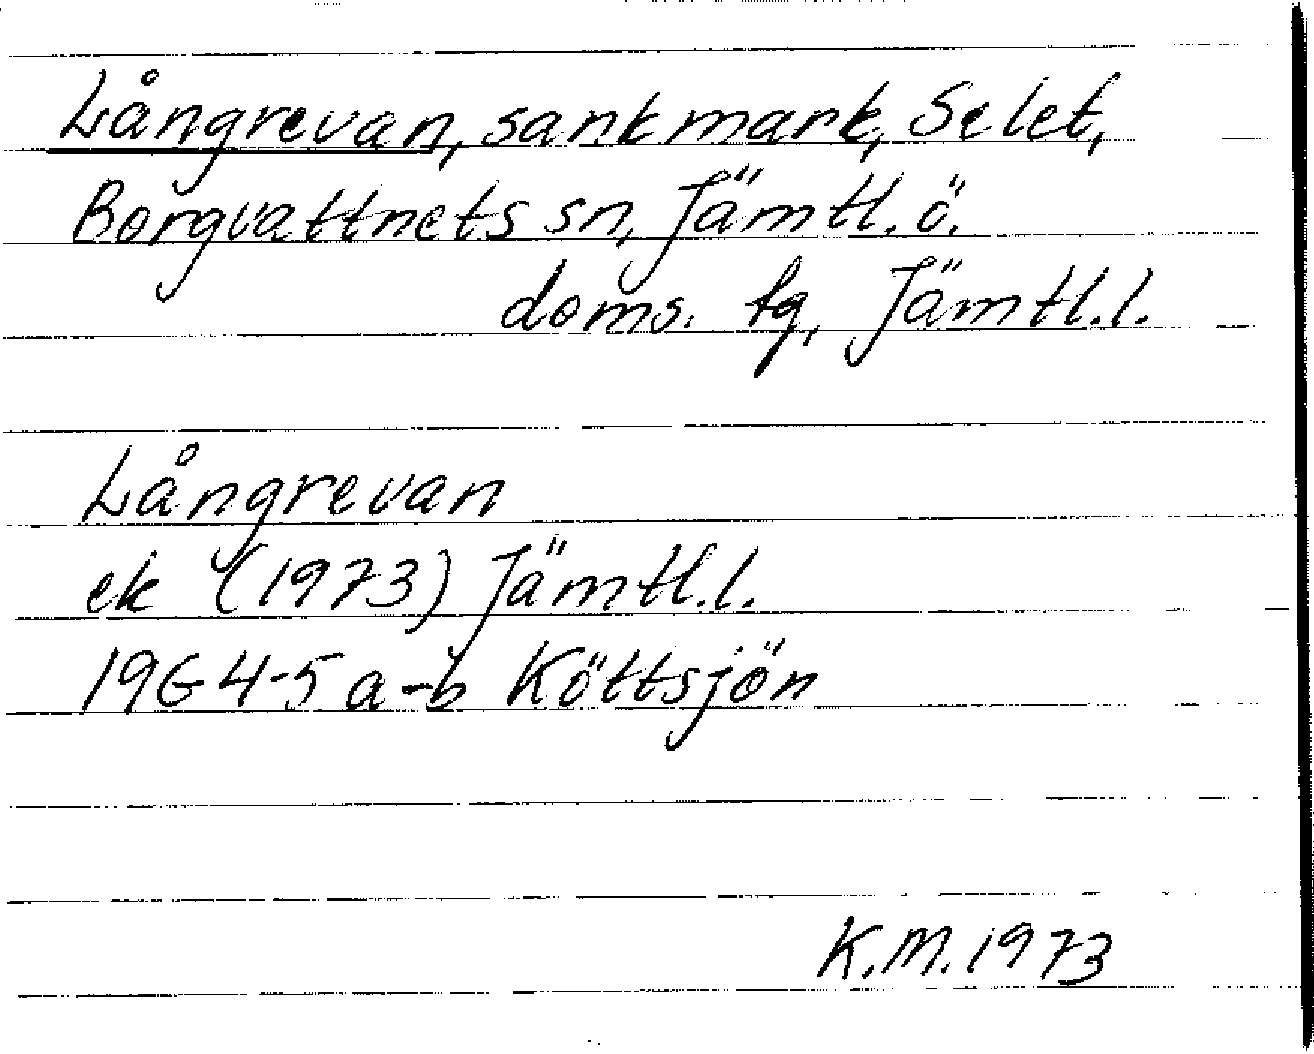 Långrevan, sankmark, Selet,
Borgvattnets sn, Jämtl. ö.
doms. tg, Jämtl.l.
Långrevan
ek (1973) Jämtl.l.
19G 4-5 a-b Köttsjön
K.M. 1973